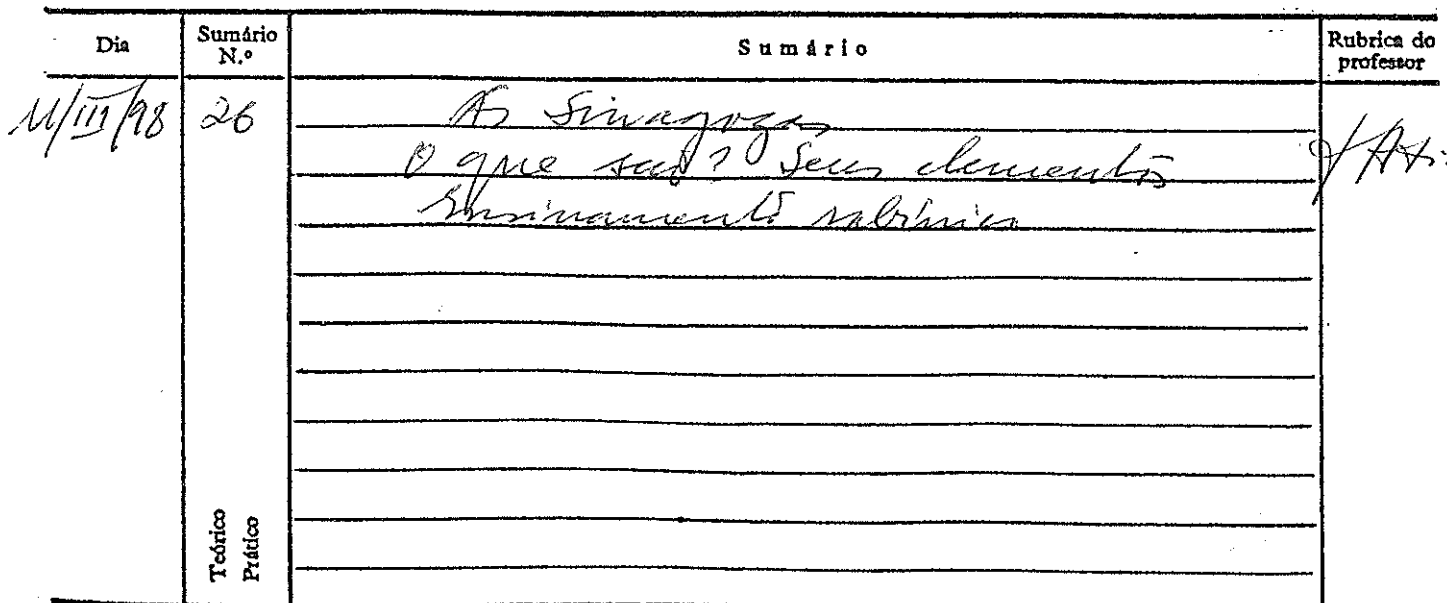 Dia Sumário N.º Sumário Rubrica do professor
11/III/98 26 As Sinagogas
O que são? Seus elementos
Ensinamento rabínico
Teórico
Prático